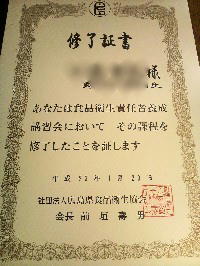 修了証書
様
あなたは食品衛生責任者養成
講習会において その課程を
修了したことを証します
平成 年1月20日
社団法人広島県食品衛生協会
会長 前垣壽男